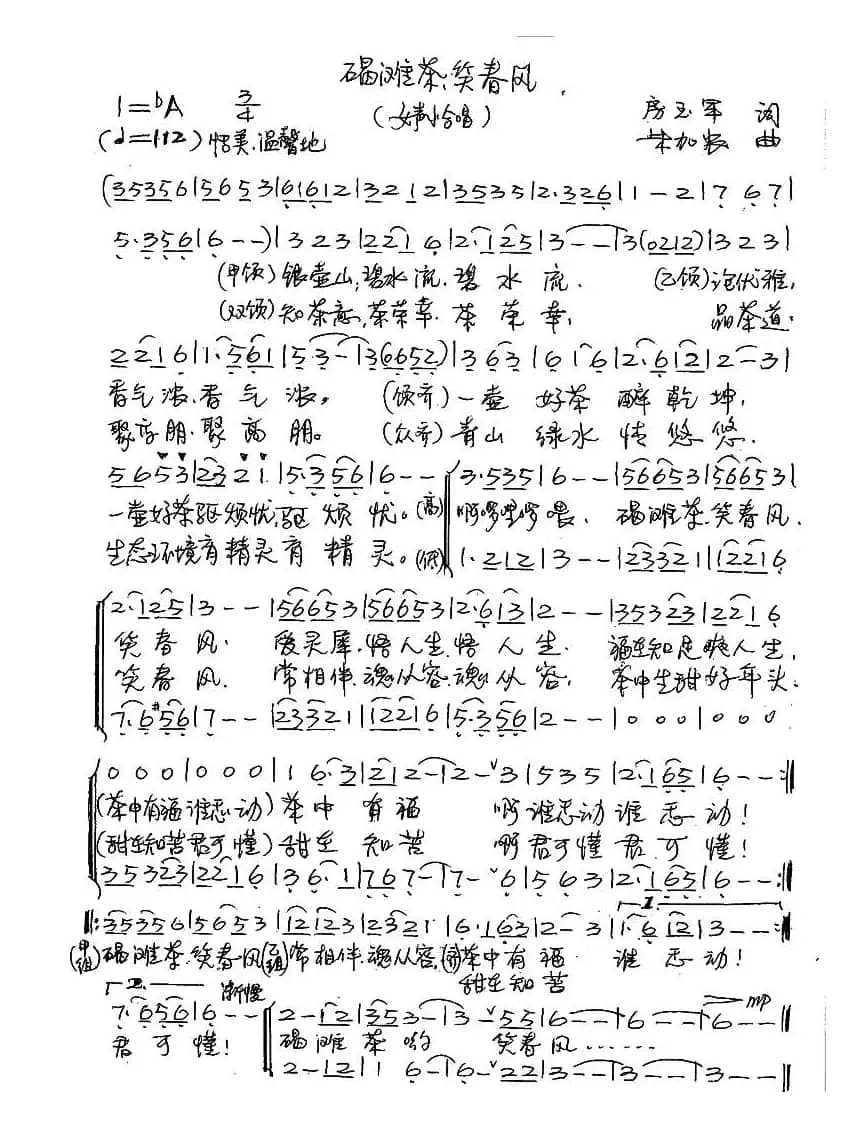 碣滩茶,笑春风
(女声小合唱)
1=♭A 3/4
房玉军 词
(♩=112) 恬美.温馨地
曲
(35356|56053|61612|32 12|3535|2·326|1-2|7 6 7|
5·356|6--)|323|221 6|2·125|3--|3(0212)|323|
(甲领)银壶山,碧水流.碧水流. (乙领)泡优雅,
(双领)知茶意,茶荣幸.茶荣幸, 品茶道.
2216|1·561|5·3-|3(0652)|363|616|2·612|2-3|
香气浓.香气浓, (领齐)一壶好茶醉乾坤,
聚高朋.聚高朋。 (众齐)青山绿水情悠悠.
5653|2321|5·356|6--|3·535|6--|56653|56653|
一壶好茶驱烦忧,驱烦忧。(高)啊啰哩啰喂. 碣滩茶.笑春风.
生态环境育精灵育精灵。(低)1·212|3--|23321|12216|
2·125|3--|56653|56653|2·613|2--|35323|2216
笑春风. 爱灵犀.悟人生.悟人生. 福至知足暖人生,
笑春风. 常相伴.魂从容.魂从容, 茶中生甜好年头.
7·6#56|7--|23321|12216|5·356|2--|000|000
000|000|16·3|212|2-12-3|535|2·165|6--:‖
(茶中有福谁思动)茶中有福 啊谁思动谁思动!
(甜至知苦君可懂)甜至知苦 啊君可懂君可懂!
35323|2216|36·1|767-|7-6|563|2·165|6--:‖
‖:35356|56053|12123|2321|6·163|2-3|1·612|3--|
(甲组)碣滩茶.笑春风(乙组)常相伴.魂从容,(齐)茶中有福 谁思动!
甜至知苦
2. 渐慢
7·656|6--|2-12|353-|-3-55|6--|6--|6--‖ mp
君可懂! 碣滩茶哟 笑春风……
2--12|1 6-|6-22|3--|3--|3--‖